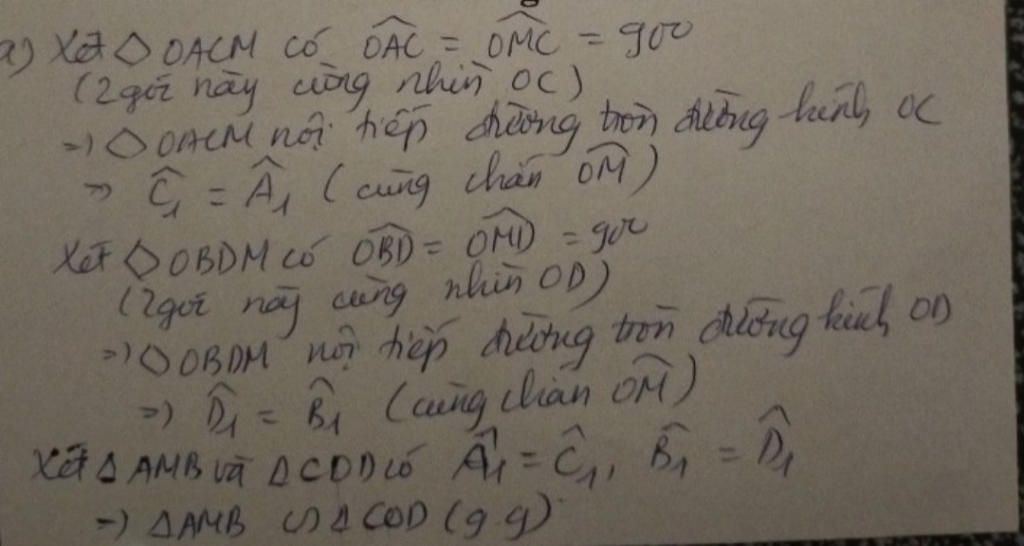 a) Xét ◇ OACM có $\widehat{OAC}$ = $\widehat{OMC}$ = 90°
(2 góc này cùng nhìn OC)
=> ◇ OACM nội tiếp đường tròn đường kính OC
=> $\widehat{C}_1$ = $\widehat{A}_1$ (cùng chắn $\widehat{OM}$)
Xét ◇ OBDM có $\widehat{OBD}$ = $\widehat{OMD}$ = 90°
(2 góc này cùng nhìn OD)
=> ◇ OBDM nội tiếp đường tròn đường kính OD
=> $\widehat{D}_1$ = $\widehat{B}_1$ (cùng chắn $\widehat{OM}$)
Xét △ AMB và △ COD có $\widehat{A}_1$ = $\widehat{C}_1$, $\widehat{B}_1$ = $\widehat{D}_1$
=> △AMB ∽ △ COD (g.g)